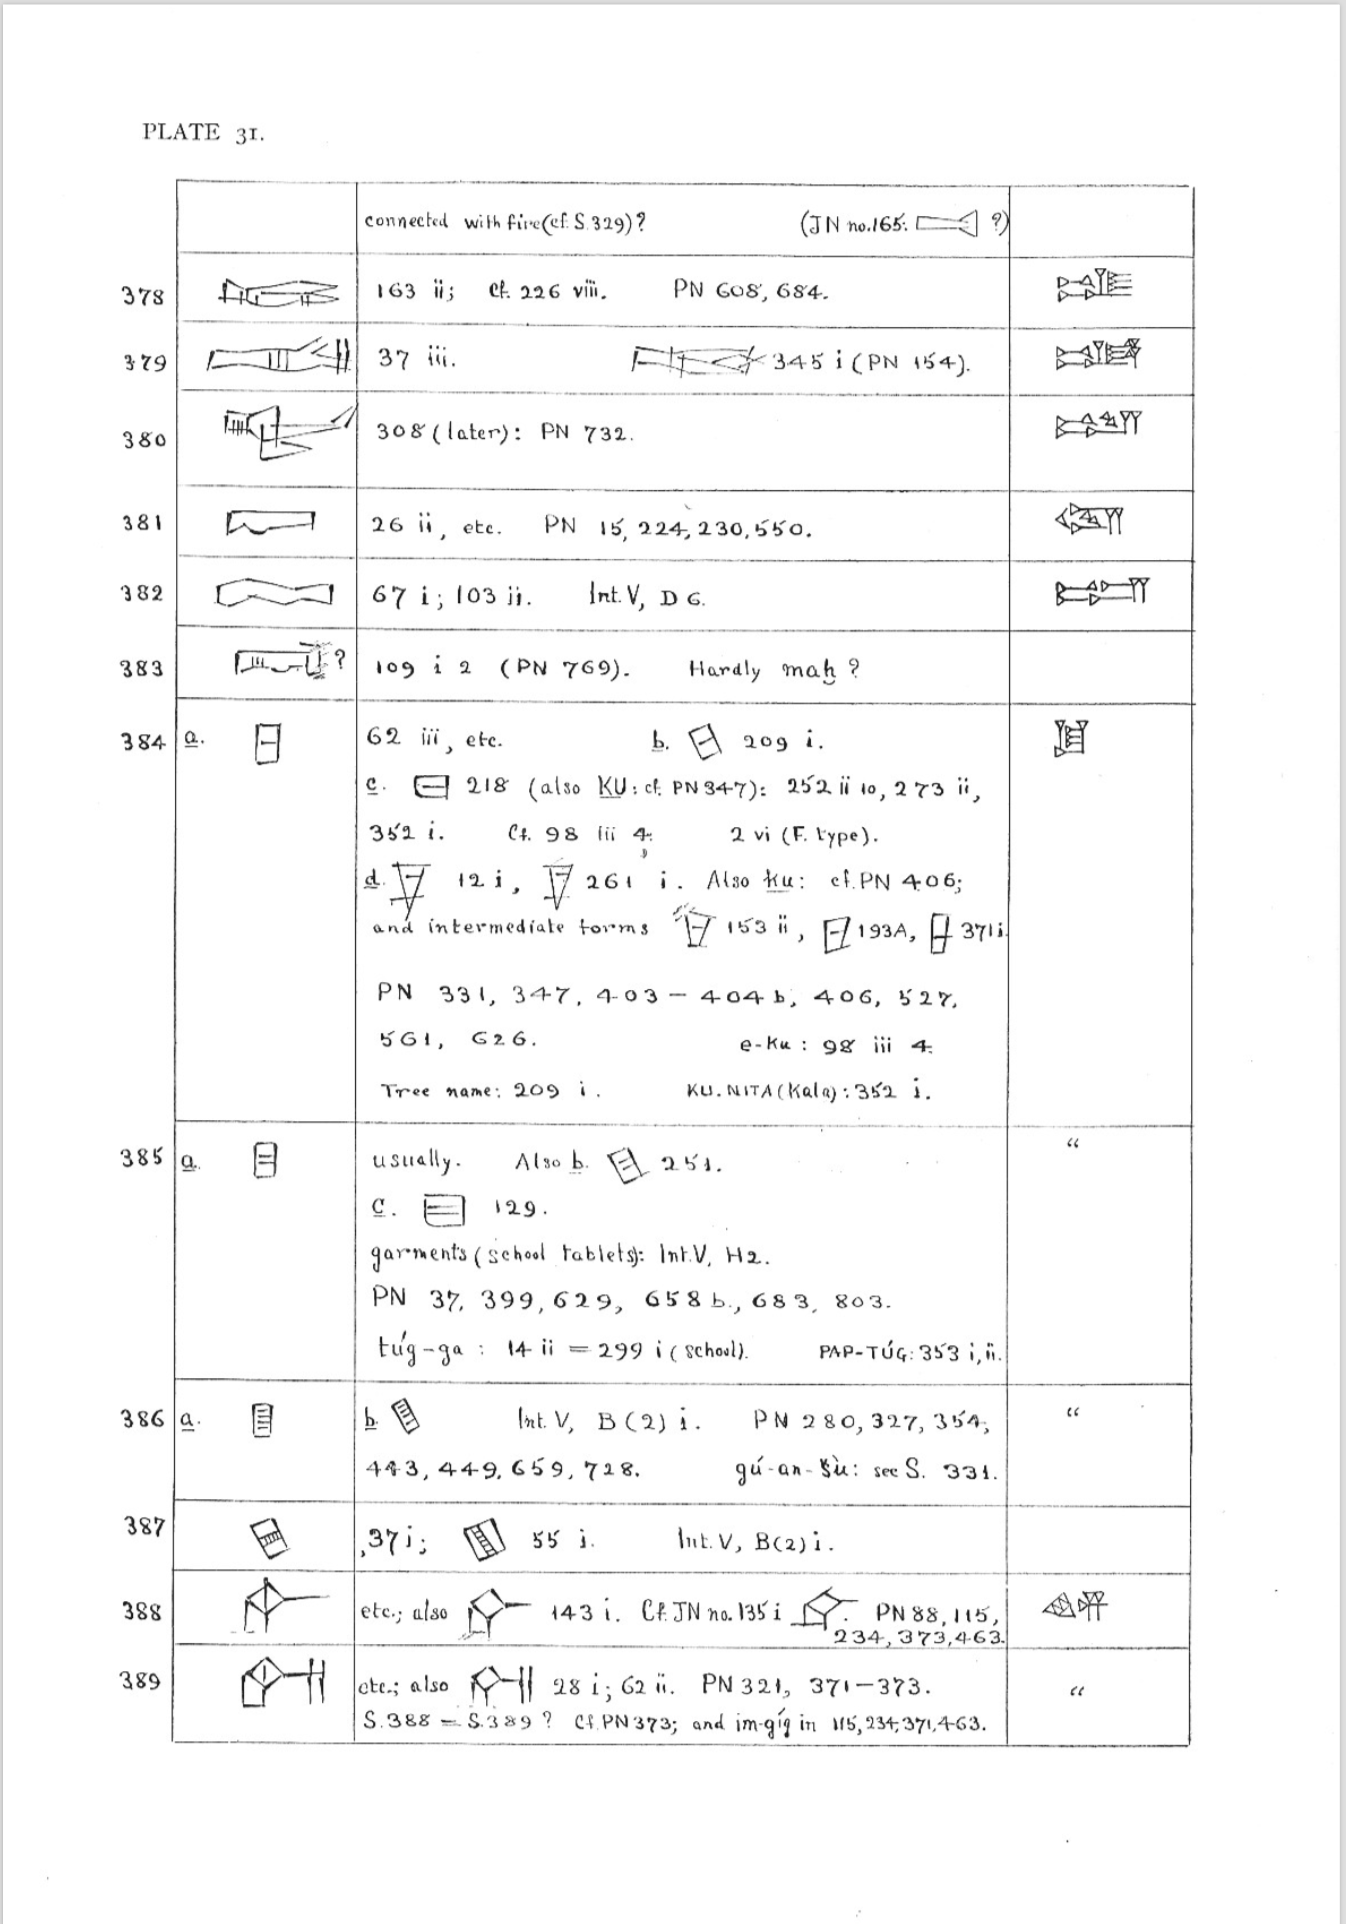 PLATE 31.
connected with fire (cf. S. 329)? (JN no. 165: ?)
378 163 ii; cf. 226 viii. PN 608, 684.
379 37 iii. 345 i (PN 154).
380 308 (later): PN 732.
381 26 ii, etc. PN 15, 224, 230, 550.
382 67 i; 103 ii. Int. V, D 6.
383 ? 109 i 2 (PN 769). Hardly maḫ ?
384 a. 62 iii, etc. b. 209 i.
c. 218 (also KU: cf. PN 347): 252 ii 10, 273 ii,
352 i. Cf. 98 iii 4. 2 vi (F. type).
d. 12 i, 261 i. Also ku: cf. PN 406;
and intermediate forms 153 ii, 193A, 371 i.
PN 331, 347, 403 – 404 b, 406, 527,
561, 626. e-ku: 98 iii 4.
Tree name: 209 i. KU. NITA (Kala): 352 i.
385 a. usually. Also b. 251. "
c. 129.
garments (school tablets): Int. V, H2.
PN 37, 399, 629, 658 b., 683, 803.
túg-ga: 14 ii = 299 i (school). PAP-TÚG: 353 i, ii.
386 a. b. Int. V, B (2) i. PN 280, 327, 354, "
443, 449, 659, 728. gú-an-šù: see S. 331.
387 37 i; 55 i. Int. V, B(2) i.
388 etc.; also 143 i. Cf. JN no. 135 i . PN 88, 115,
234, 373, 463.
389 etc.; also 28 i; 62 ii. PN 321, 371–373. "
S. 388 = S. 389 ? Cf. PN 373; and im-gíg in 115, 234, 371, 463.